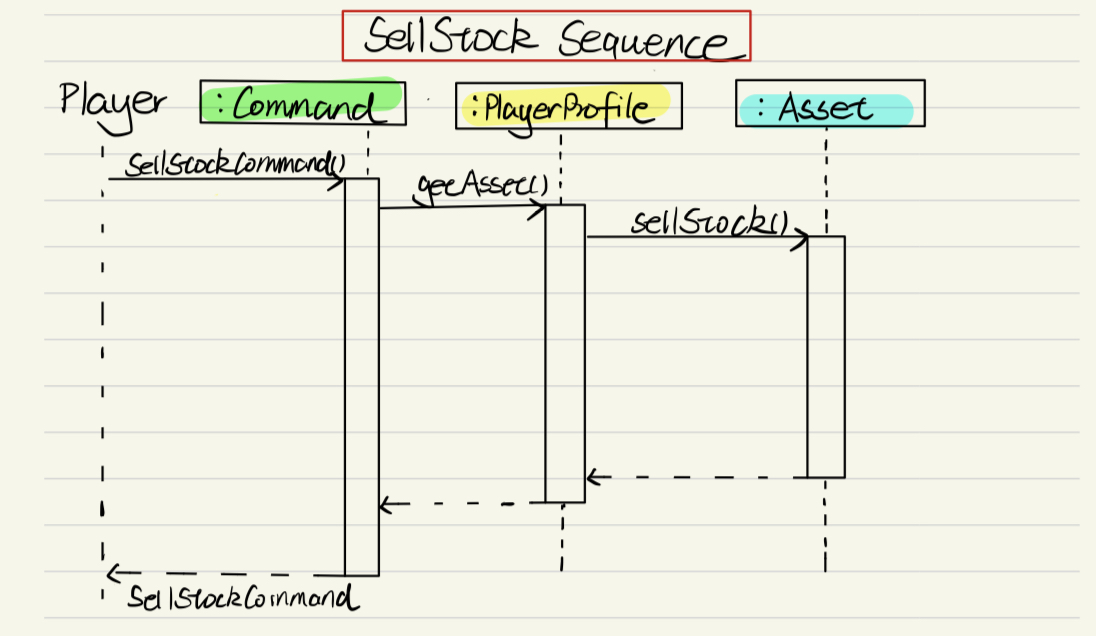 SellStock Sequence
Player
:Command
:PlayerProfile
: Asset
SellStockCommand()
getAsset()
sellStock()
SellStockCommand